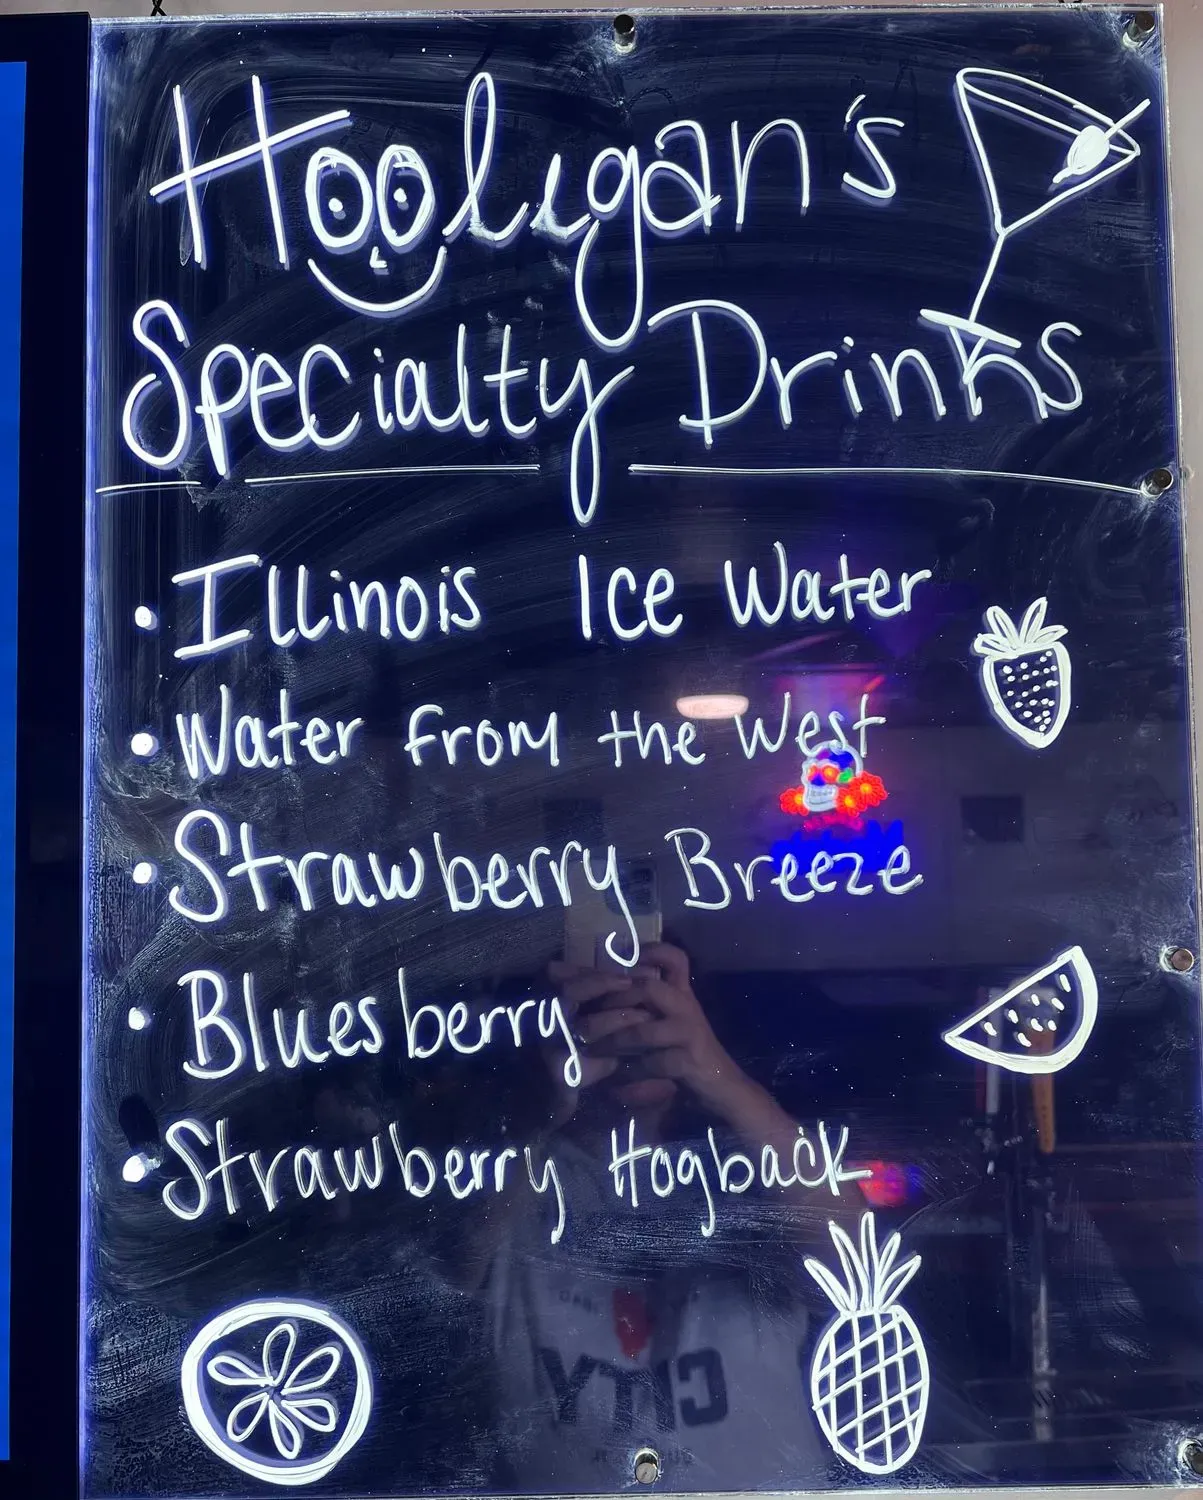 Hooligan's
Specialty Drinks
• Illinois Ice Water
• Water from the West
• Strawberry Breeze
• Bluesberry
• Strawberry Hogback
CITY